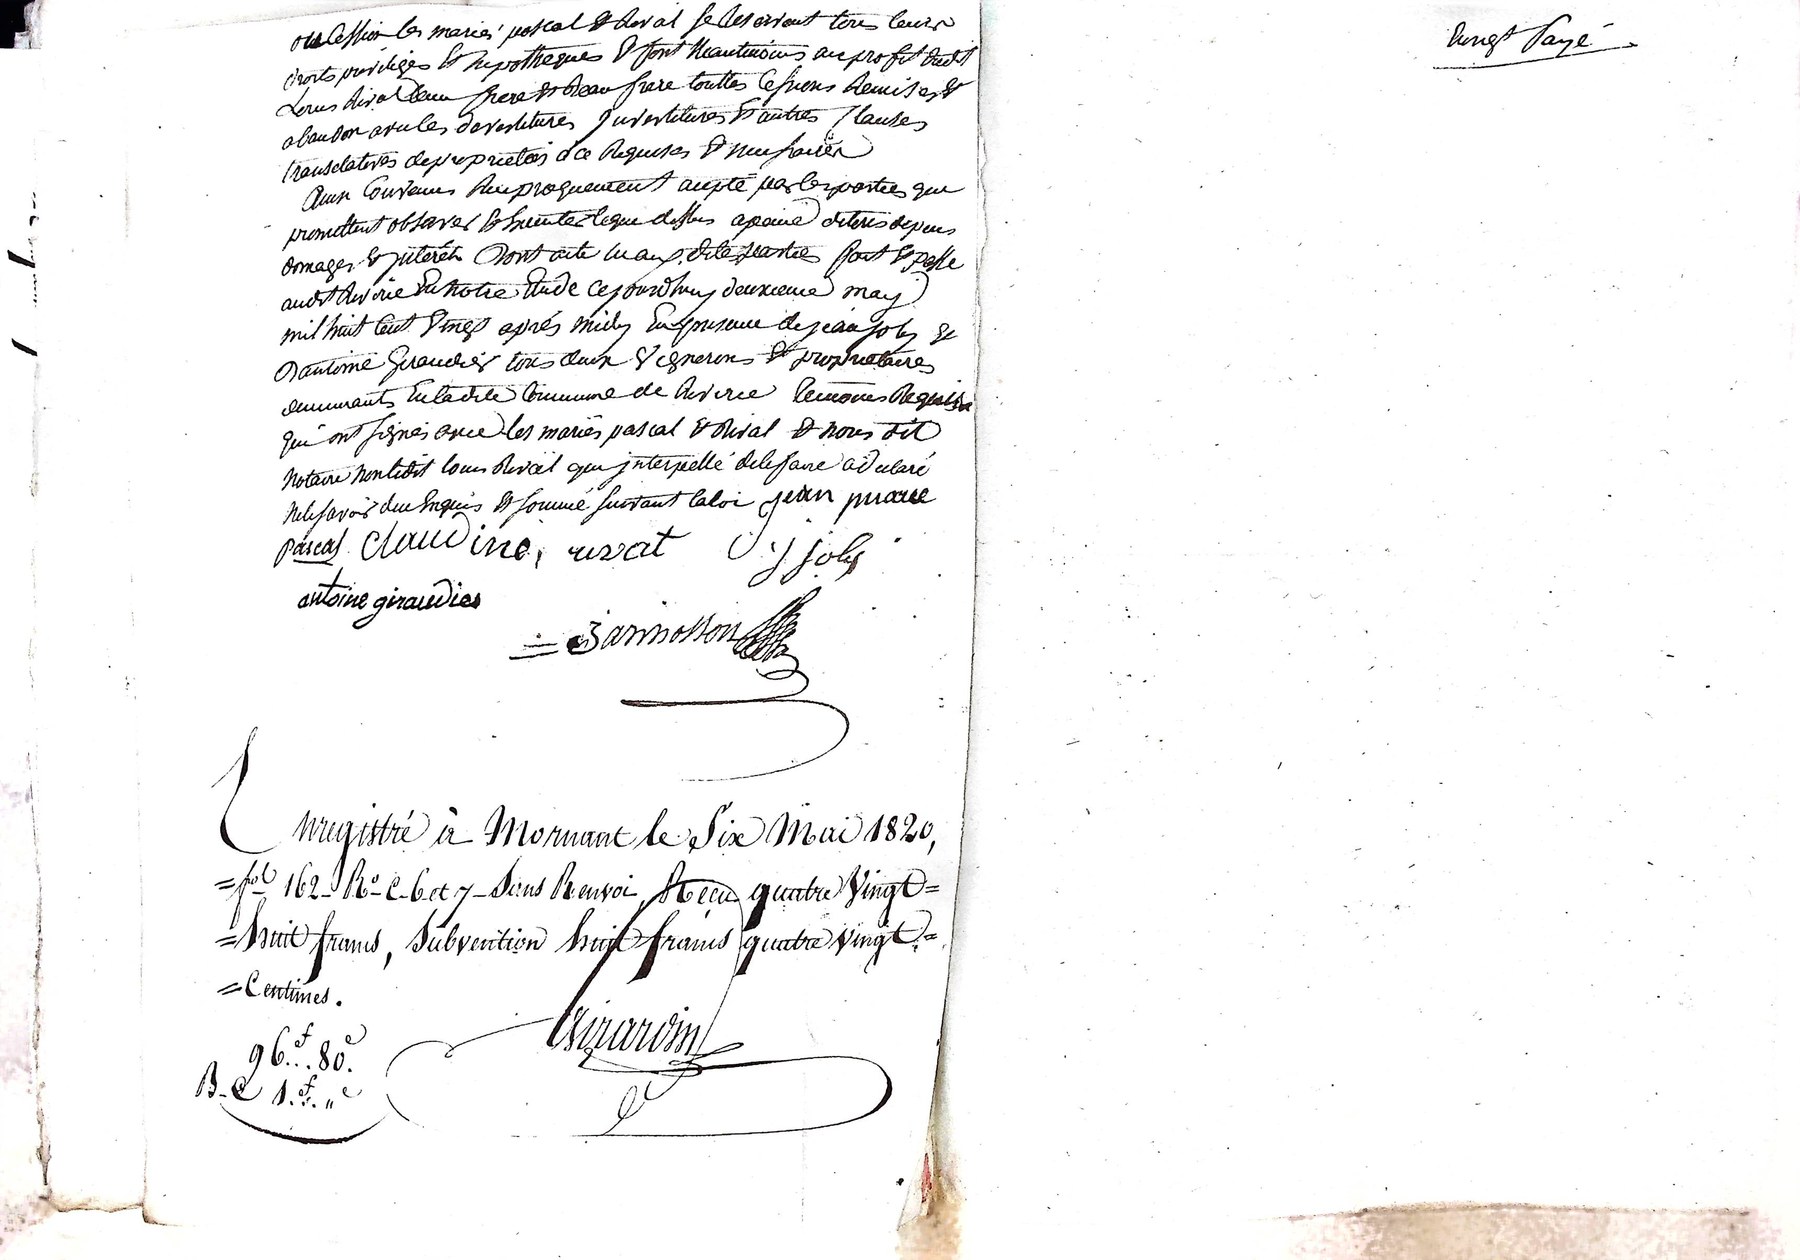 cession les mariés pascal & Rivat se Reservent tous leurs
droits privilèges & hypotheques & font Neantmoins au profit dudit
Louis Rivat leur frere & Beau frere touttes Cessions Remises &
abandon avec les devestitures Jnvestitures & autres Clauses
translatives de proprietés a ce Requises & necessaires
Ainsi Convenu Reciproquement accepté par les parties que
promettent observer & Executer le que dessus a peine de tous depens
domages & jnteréts Dont acte lu aux dites parties fait & passé
audit Riverie En notre Etude cejourdhuy deuxieme may
mil huit Cent Vingt aprés midy En presence de jean Joly &
D'antoine Giraudier tous deux Vignerons & proprietaires
demeurants En ladite Commune de Riverie temoins Requis
qui ont signés avec les mariés pascal & Rivat & nous dit
Notaire non ledit louis Rivat qui jnterpellé de le faire a declaré
ne le savoir de ce Enquis & sommé suivant la loi jean pierre
pascal Claudine rivat J joly
antoine giraudier
Enregistré à Mornant le Six Mai 1820,
=fol 162 Ro C. 6 et 7 Sans Renvoi, Reçu quatre Vingt=
=huit francs, Subvention huit francs quatre vingt=
=Centimes.
96.f 80.c
B-C 1.f. "c
Girardin
Vingt Payé